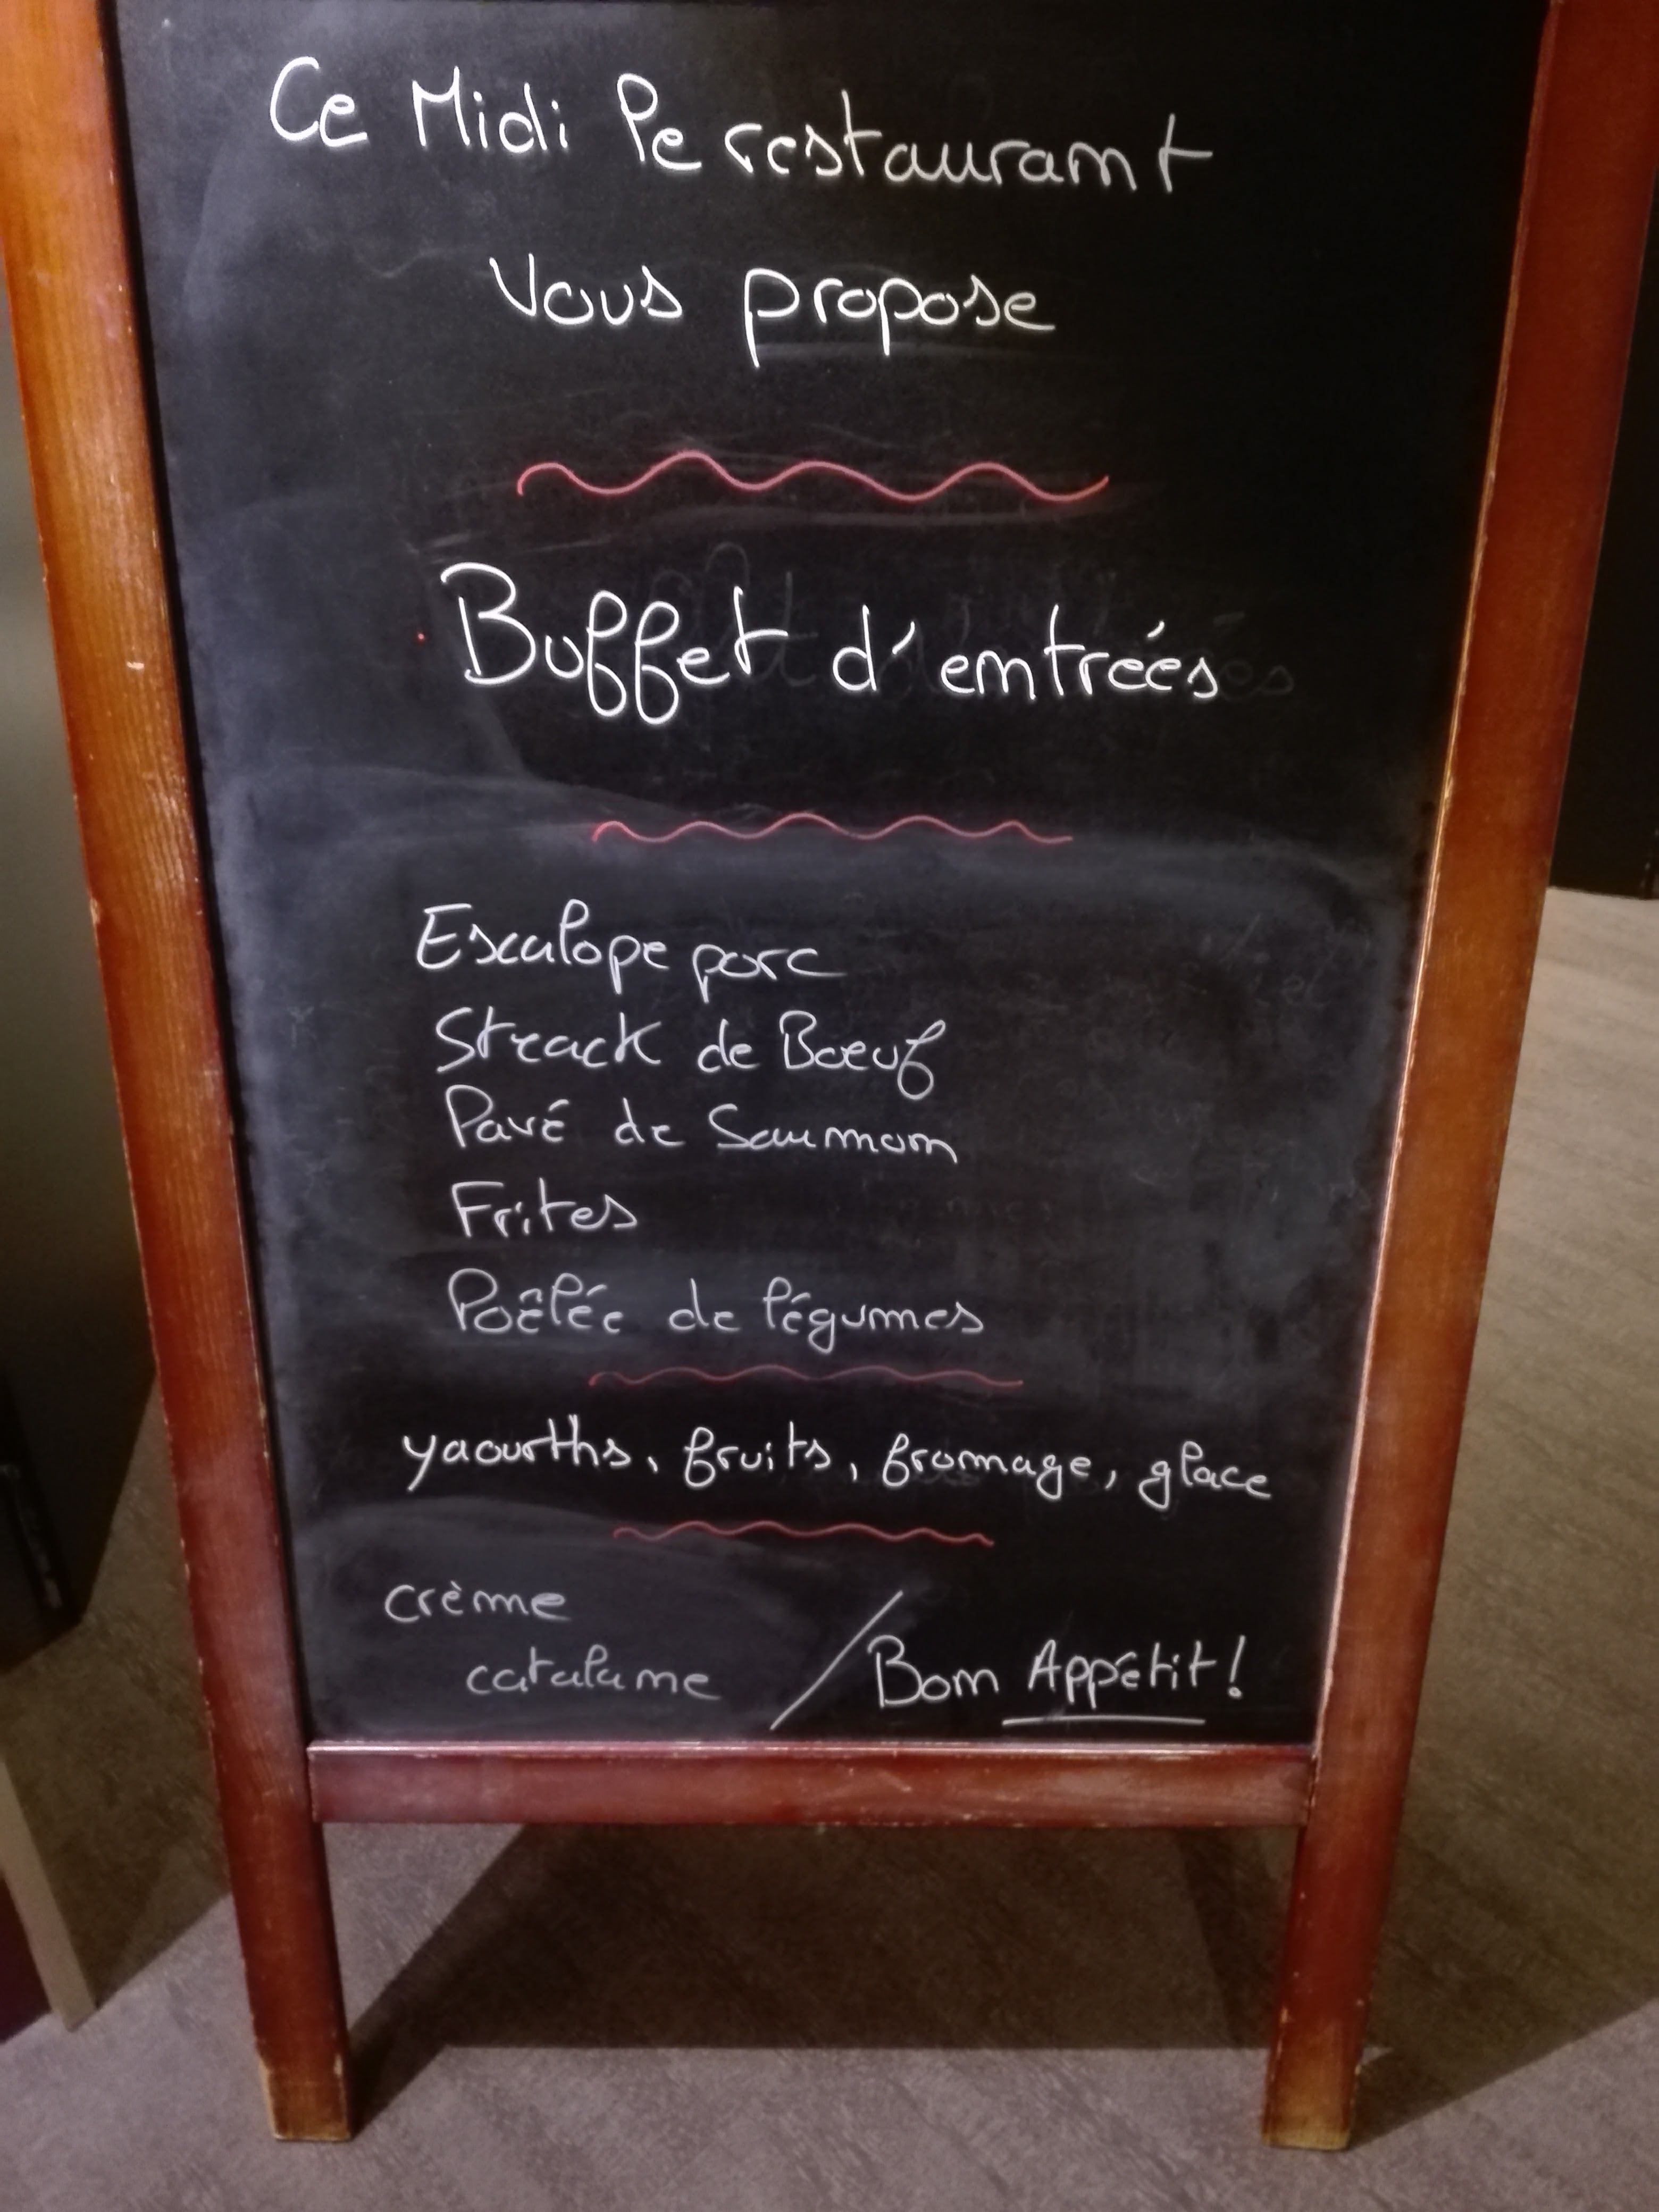 Ce Midi le restaurant
Vous propose
Buffet d'entrées
Escalope porc
Streack de Boeuf
Pavé de Saumon
Frites
Poêlée de légumes
yaourths, fruits, fromage, glace
crème
catalane / Bon Appétit!